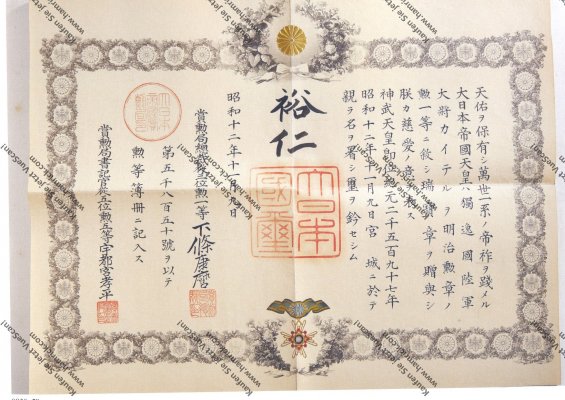 天佑ヲ保有シ萬世一系ノ帝祚ヲ踐メル
大日本帝國天皇ハ獨逸國陸軍
大將カイテルヲ明治勲章ノ
勲一等ニ敍シ瑞寶章ヲ贈與シ
朕カ慈愛ノ意ヲ表ス
神武天皇即位紀元二千五百九十七年
昭和十二年十一月九日宮城ニ於テ
親ラ名ヲ署シ璽ヲ鈐セシム
裕仁
大日本國璽
昭和十二年十一月九日
賞勲局總裁 位勲一等下條康麿
第五千八百五十號ヲ以テ
勲等簿冊ニ記入ス
賞勲局書記官 五位勲五等宇都宮孝平
Kaufen Sie jetzt VueScan!
www.hamrick.com